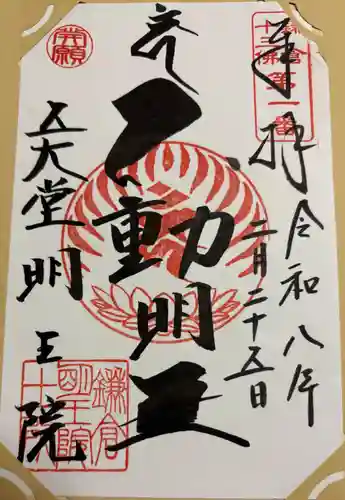 奉拝
鎌倉十三佛第一番
令和八年二月二十五日
不動明王
発願
五大堂明王院
鎌倉明王院